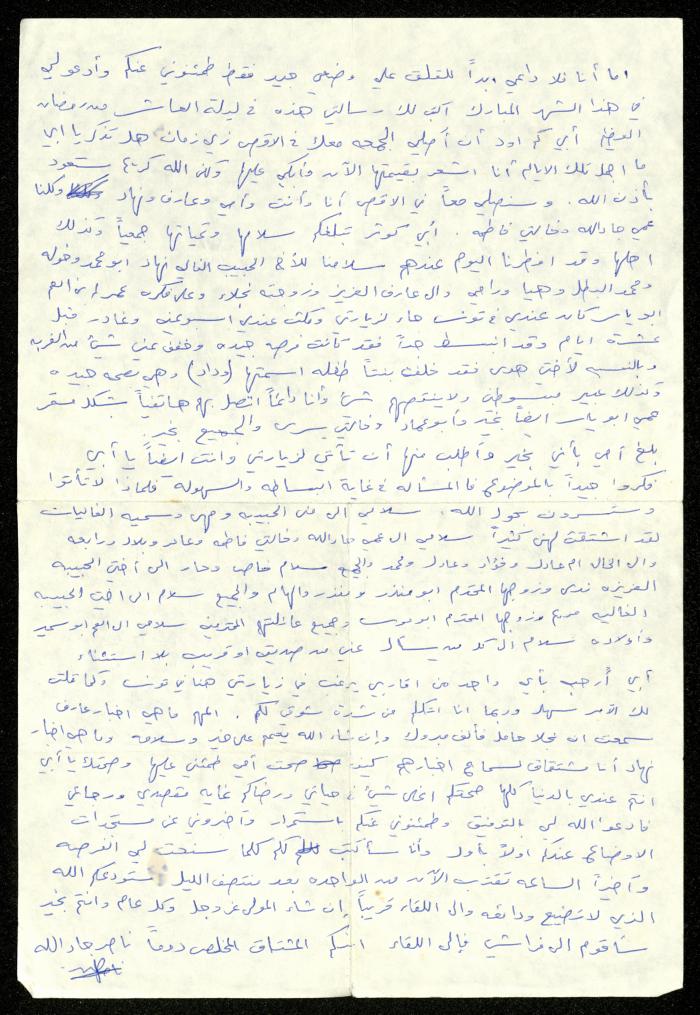 اما أنا فلا داعي ابداً للقلق علي وضعي جيد فقط طمئنوني عنكم وأدعو لي
في هذا الشهر المبارك اكتب لك رسالتي هذه في ليلة العاشر من رمضان
أبي كم اود أن أصلي الجمعه معك في الاقصى زي زمان هل تذكر يا ابي
ما اجمل تلك الايام أنا اشعر بقيمتها الآن وأبكي عليها ولكن الله كريم ستعود
بأذن الله . وسنصلي معاً في الاقصى أنا وأنت وأمي وعارف ونهاد وكلنا
عمي جادالله وخالتي فاطمه . أبي كوثر تبلغكم سلامها وتحياتها جميعاً وكذلك
اهلها وقد افطرنا اليوم عندهم سلامنا للأخ الحبيب الغالي نهاد ابو محمد وخوله
ومحمد البطل وهبا ورامي والى عارف العزيز وزوجته نجلاء وعلى فكره
ابو ياسر كان عندي في تونس جاء لزيارتي ومكث عندي اسبوعين وغادر قبل
عشرة ايام وقد انبسط جداً فقد كانت فرصه جيده وخفف عني شيئ من الغربه
وبالنسبه لأختي هدى فقد خلفت بنتاً طفله اسمتها (وداد) وهي بصحه جيده
وكذلك عبير مبسوطه ولا ينقصهم شئ وأنا دائماً اتصل بهم هاتفياً بشكل مستمر
عمي ابو ياسر ايضاً بخير وأبو عماد وخالتي يسرى والجميع بخير
بلغ أمي بأني بخير وأطلب منها أن تأتي لزيارتي وانت ايضاً يا أبي
فكروا جيداً بالموضوع فالمسئاله في غاية البساطه والسهوله فلماذا لا تأتوا
وستسرون بحول الله . سلامي الى منى الحبيبه وسميه الغاليات
لقد اشتقت لهن كثيراً سلامي الى عمي جادالله وخالتي فاطمه وعامر وبلال ورابعه
والى الخال ام عادل وفؤاد وعادل ومحمد والجميع سلام خاص وحار الى أختي الحبيبه
العزيزه ندى وزوجها المحترم ابو منذر ومنذر والهام والجميع سلام الى اختي الحبيبه
الغاليه وزوجها المحترم ابو وجميع عائلتهم المحترمين سلامي الى العم ابو سمير
وأولاده سلام الى كل من يسأل عني من صديق او قريب بلا استثناء
أبي أرحب بأي واحد من اقاربي يرغب في زيارتي هنا في تونس وكما قلت
لك الأمر سهل وربما انا اتكلم من شدة شوقي لكم . المهم ما هي اخبار عارف
سمعت ان نجلا حامل فألف مبروك وإن شاء الله يقوم على خير وسلامه وما هي اخبار
نهاد أنا مشتاق لسماع اخبارهم كيف صحت أمي طمئني عليها وصحتك يا أبي
انتم عندي بالدنيا كلها صحتكم اغلى شئ في حياتي ورضاكم غايه مقصدي ورجائي
فادعو الله لي بالتوفيق وطمئنوني عنكم باستمرار وأخبروني عن مستجدات
الاوضاع عندكم اولاً بأول وأنا سأكتب لكم كلما سنحت لي الفرصه
وأخيراً الساعه تقترب الآن من الواحده بعد منتصف الليل استودعكم الله
الذي لا تضيع ودائعه والى اللقاء قريباً إن شاء المولى عز وجل وكل عام وانتم بخير
سأقوم الى فراشي فإلى اللقاء ابنكم المشتاق المخلص دوماً ناصر جادالله